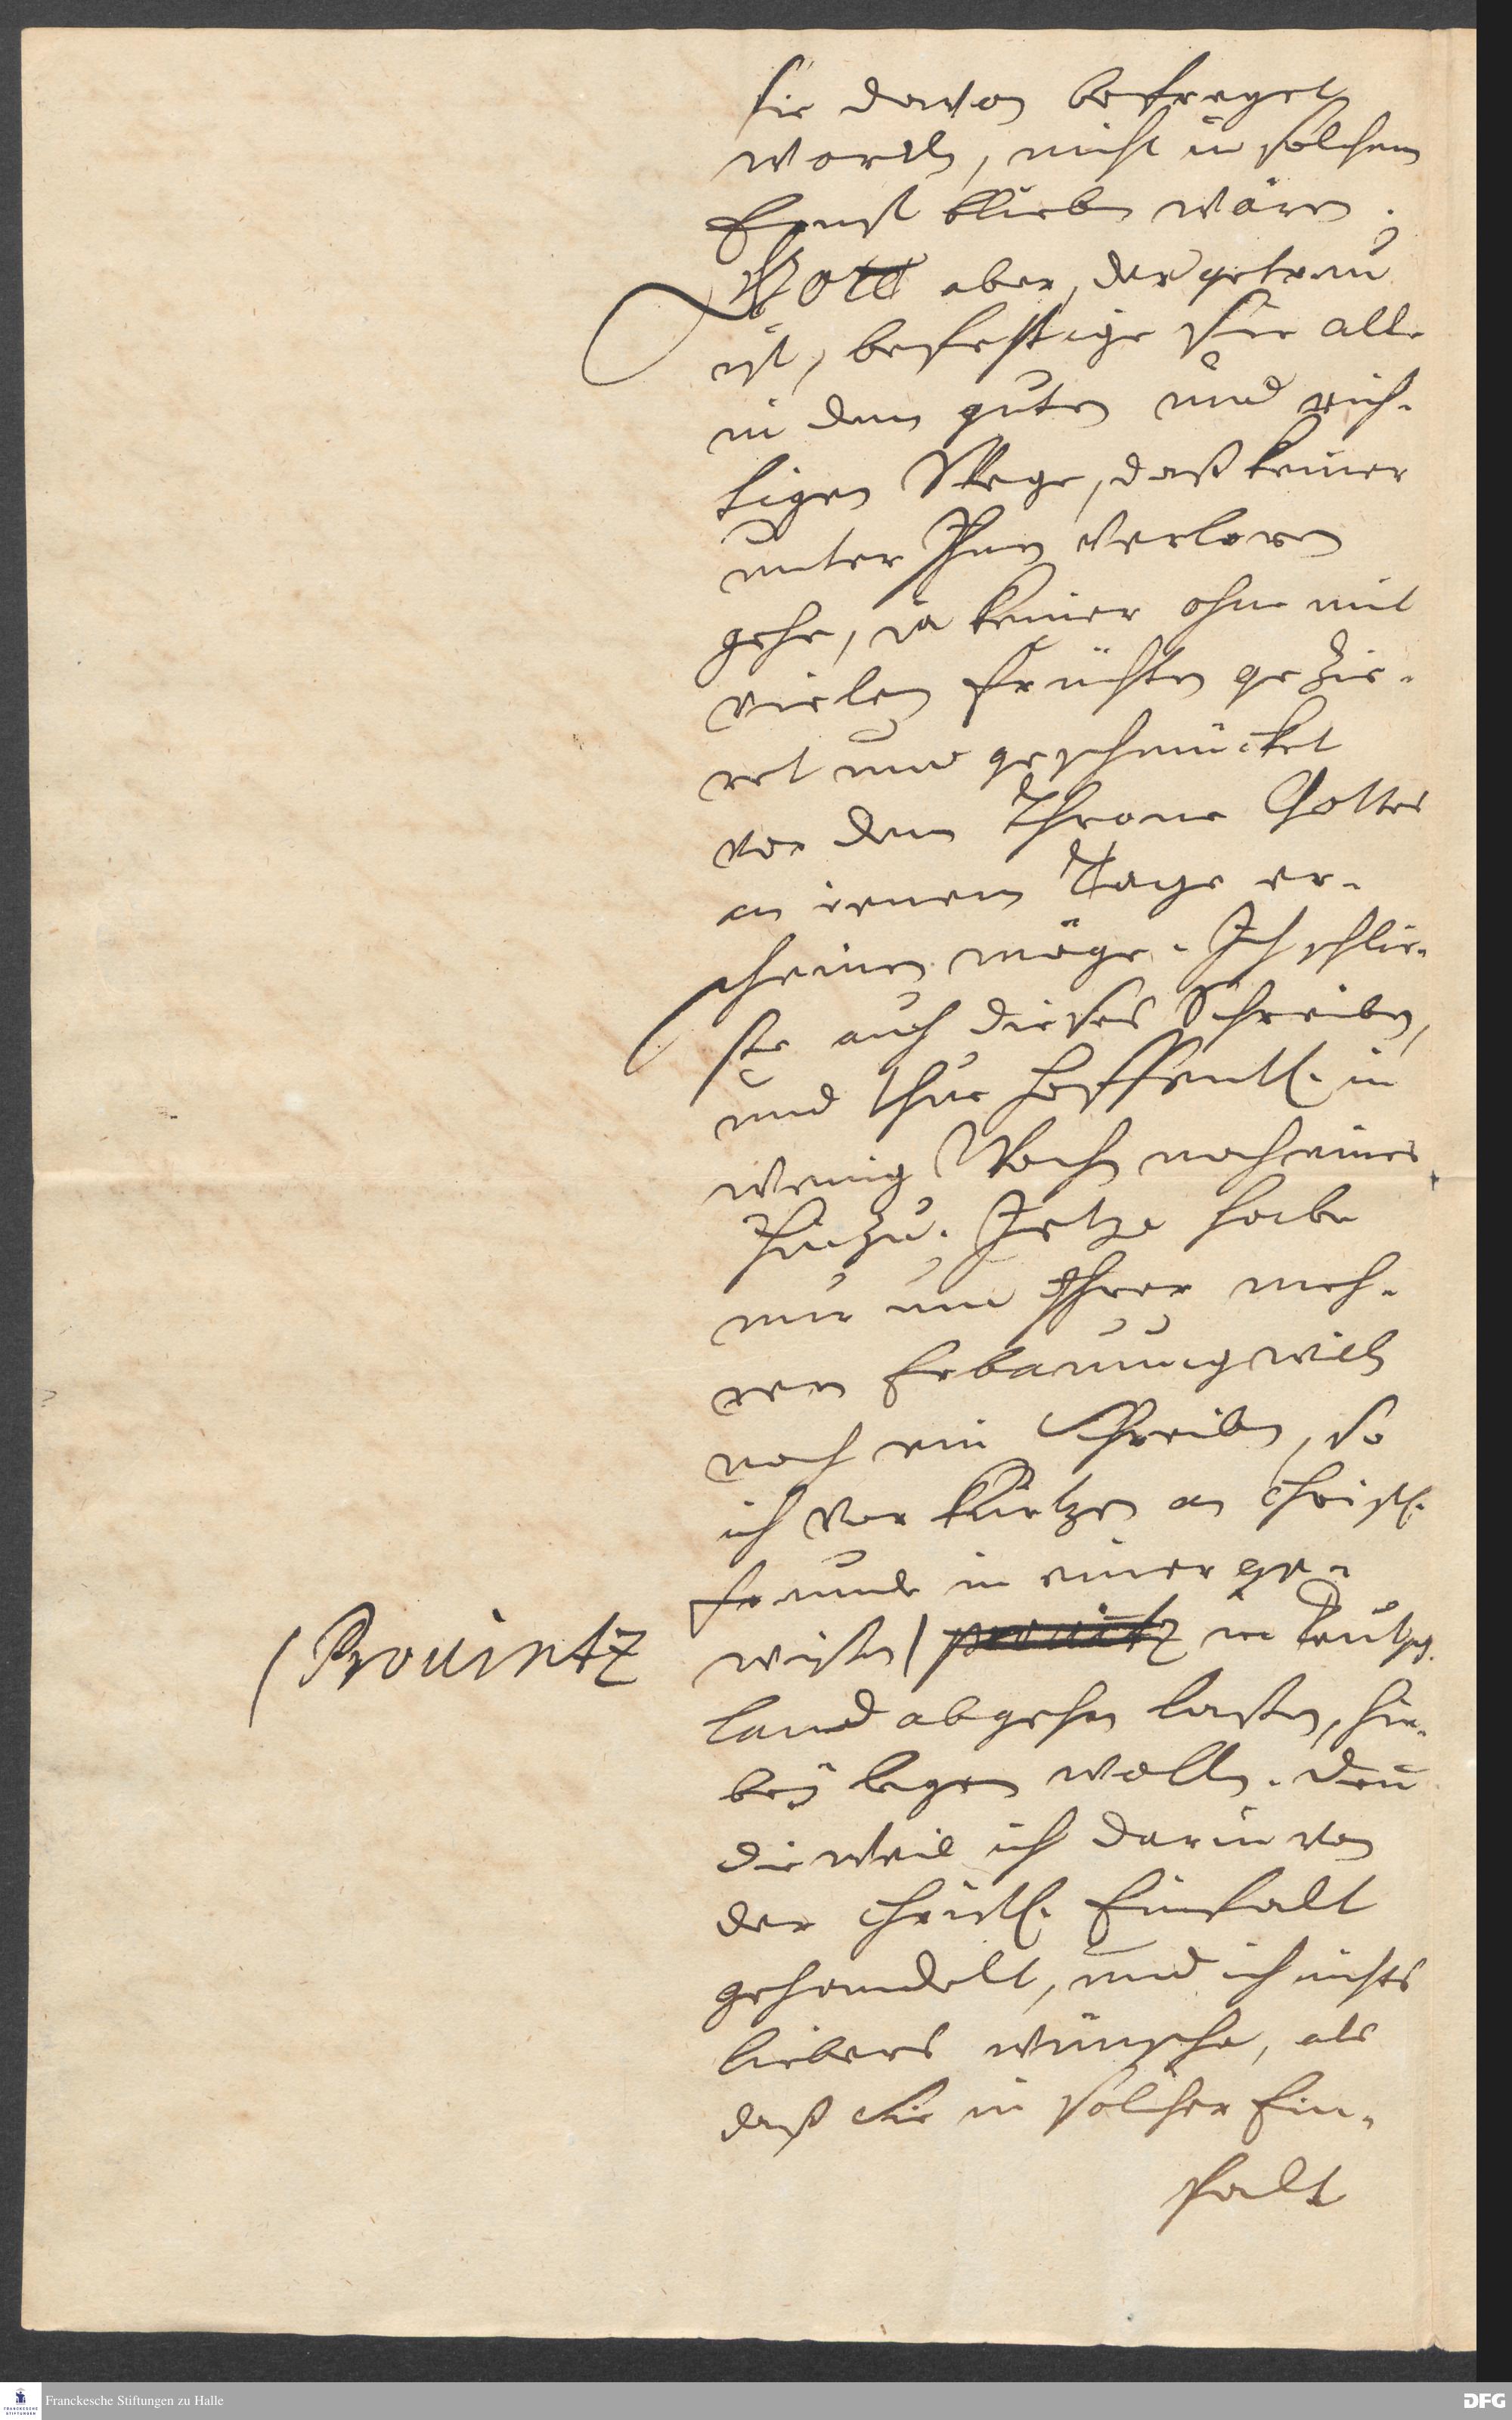 sie davon befraget
worden, nicht in solchem
Ernst blieben wären.
Gott aber, der getreu
ist, befestige Sie alle
in dem guten und rich-
tigen Wege, daß keiner
unter Ihnen verloren
gehe, ja keiner ohne mit
vielen früchten gezie-
ret und geschmücket
vor dem Throne Gottes
an jenem Tage er-
scheinen möge. Ich schlie-
ße auch dieses Schreiben,
und thue hoffentl. in
wenig Wochen noch eines
hinzu. Jetzo habe
nur um Ihrer meh-
ren Erbauung willen
noch ein Schreiben, so
ich vor kurtzen an christl.
freunde in einer ge-
wißen / Provintz in Teutsch-
/ Provintz
land abgehen laßen, hie-
bey legen wollen. Denn
dieweil ich darin von
der christl. Einfalt
gehandelt, und ich nichts
liebers wünsche, als
daß Sie in solcher Ein-
falt
Franckesche Stiftungen zu Halle
DFG